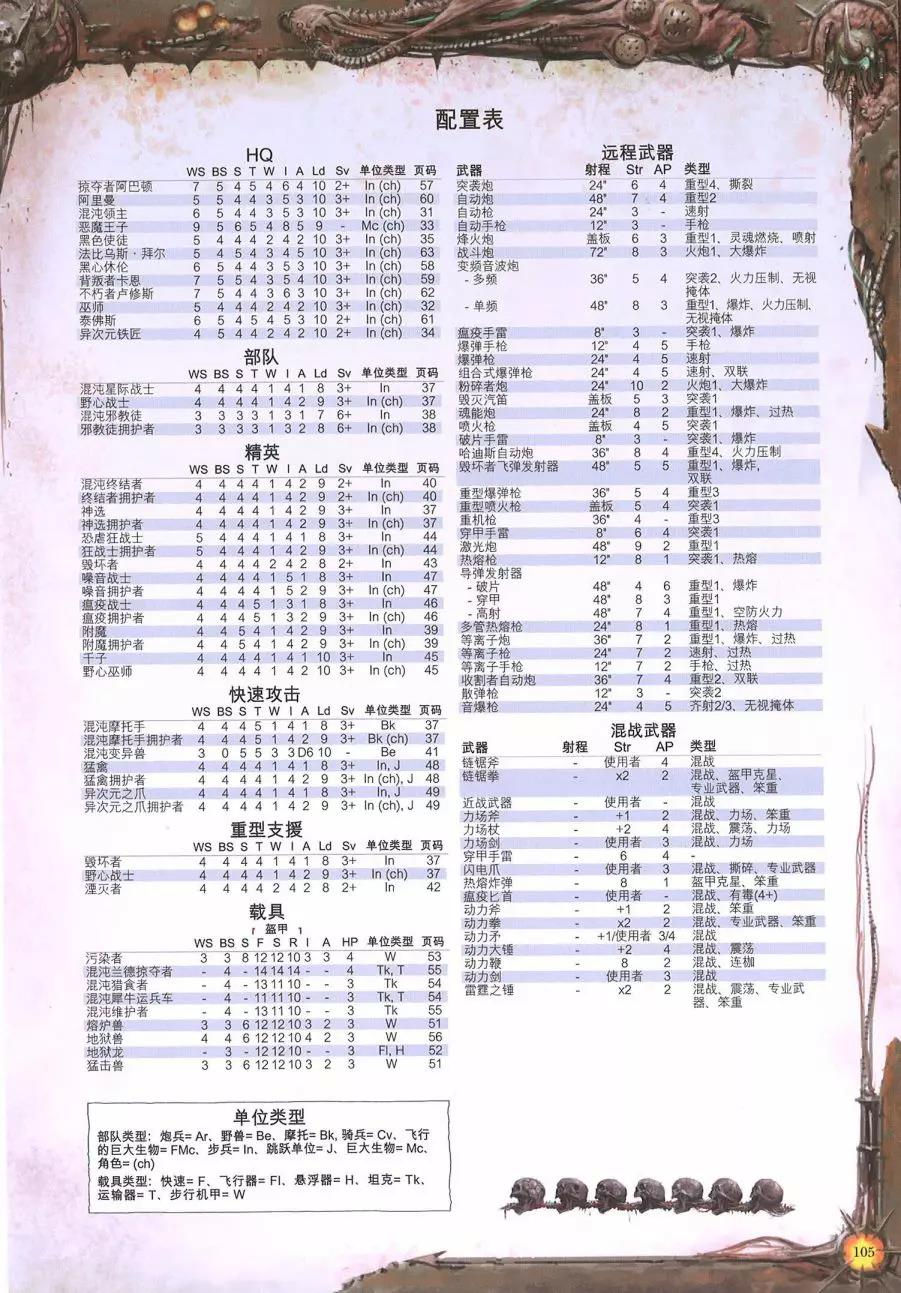 配置表
HQ
WS BS S T W I A Ld Sv 单位类型 页码
掠夺者阿巴顿 7 5 4 5 4 6 4 10 2+ In (ch) 57
阿里曼 5 5 4 4 3 5 3 10 3+ In (ch) 60
混沌领主 6 5 4 4 3 5 3 10 3+ In (ch) 31
恶魔王子 9 5 6 5 4 8 5 9 - Mc (ch) 33
黑色使徒 5 4 4 4 2 4 2 10 3+ In (ch) 35
法比乌斯·拜尔 5 4 5 4 3 4 5 10 3+ In (ch) 63
黑心休伦 6 5 4 4 3 5 3 10 3+ In (ch) 58
背叛者卡恩 7 5 5 4 3 5 4 10 3+ In (ch) 59
不朽者卢修斯 7 5 4 4 3 6 3 10 3+ In (ch) 62
巫师 5 4 4 4 2 4 2 10 3+ In (ch) 32
泰佛斯 6 5 4 5 4 5 3 10 2+ In (ch) 61
异次元铁匠 4 5 4 4 2 4 2 10 2+ In (ch) 34
部队
WS BS S T W I A Ld Sv 单位类型 页码
混沌星际战士 4 4 4 4 1 4 1 8 3+ In 37
野心战士 4 4 4 4 1 4 2 9 3+ In (ch) 37
混沌邪教徒 3 3 3 3 1 3 1 7 6+ In 38
邪教徒拥护者 3 3 3 3 1 3 2 8 6+ In (ch) 38
精英
WS BS S T W I A Ld Sv 单位类型 页码
混沌终结者 4 4 4 4 1 4 2 9 2+ In 40
终结者拥护者 4 4 4 4 1 4 2 9 2+ In (ch) 40
神选 4 4 4 4 1 4 2 9 3+ In 37
神选拥护者 4 4 4 4 1 4 2 9 3+ In (ch) 37
恐虐狂战士 5 4 4 4 1 4 1 8 3+ In 44
狂战士拥护者 5 4 4 4 1 4 2 9 3+ In (ch) 44
毁坏者 4 4 4 4 2 4 2 8 2+ In 43
噪音战士 4 4 4 4 1 5 1 8 3+ In 47
噪音拥护者 4 4 4 4 1 5 2 9 3+ In (ch) 47
瘟疫战士 4 4 4 5 1 3 1 8 3+ In 46
瘟疫拥护者 4 4 4 5 1 3 2 9 3+ In (ch) 46
附魔 4 4 5 4 1 4 2 9 3+ In 39
附魔拥护者 4 4 5 4 1 4 2 9 3+ In (ch) 39
千子 4 4 4 4 1 4 1 10 3+ In 45
野心巫师 4 4 4 4 1 4 2 10 3+ In (ch) 45
快速攻击
WS BS S T W I A Ld Sv 单位类型 页码
混沌摩托手 4 4 4 5 1 4 1 8 3+ Bk 37
混沌摩托手拥护者 4 4 4 5 1 4 2 9 3+ Bk (ch) 37
混沌变异兽 3 0 5 5 3 3 D6 10 - Be 41
猛禽 4 4 4 4 1 4 1 8 3+ In, J 48
猛禽拥护者 4 4 4 4 1 4 2 9 3+ In (ch), J 48
异次元之爪 4 4 4 4 1 4 1 8 3+ In, J 49
异次元之爪拥护者 4 4 4 4 1 4 2 9 3+ In (ch), J 49
重型支援
WS BS S T W I A Ld Sv 单位类型 页码
毁坏者 4 4 4 4 1 4 1 8 3+ In 37
野心战士 4 4 4 4 1 4 2 9 3+ In (ch) 37
湮灭者 4 4 4 4 2 4 2 8 2+ In 42
载具
盔甲
WS BS S F S R I A HP 单位类型 页码
污染者 3 3 8 12 12 10 3 3 4 W 53
混沌兰德掠夺者 - 4 - 14 14 14 - - 4 Tk, T 55
混沌猎食者 - 4 - 13 11 10 - - 3 Tk 54
混沌犀牛运兵车 - 4 - 11 11 10 - - 3 Tk, T 54
混沌维护者 - 4 - 13 11 10 - - 3 Tk 55
熔炉兽 3 3 6 12 12 10 3 2 3 W 51
地狱兽 4 4 6 12 12 10 4 2 3 W 56
地狱龙 - 3 - 12 12 10 - - 3 Fl, H 52
猛击兽 3 3 6 12 12 10 3 2 3 W 51
单位类型
部队类型：炮兵= Ar、野兽= Be、摩托= Bk, 骑兵= Cv、飞行
的巨大生物= FMc、步兵= In、跳跃单位= J、巨大生物= Mc、
角色= (ch)
载具类型：快速= F、飞行器= Fl、悬浮器= H、坦克= Tk、
运输器= T、步行机甲= W
远程武器
武器 射程 Str AP 类型
突袭炮 24" 6 4 重型4、撕裂
自动炮 48" 7 4 重型2
自动枪 24" 3 - 速射
自动手枪 12" 3 - 手枪
烽火炮 盖板 6 3 重型1、灵魂燃烧、喷射
战斗炮 72" 8 3 火炮1、大爆炸
变频音波炮
- 多频 36" 5 4 突袭2、火力压制、无视
掩体
- 单频 48" 8 3 重型1、爆炸、火力压制、
无视掩体
瘟疫手雷 8" 3 - 突袭1、爆炸
爆弹手枪 12" 4 5 手枪
爆弹枪 24" 4 5 速射
组合式爆弹枪 24" 4 5 速射、双联
粉碎者炮 24" 10 2 火炮1、大爆炸
毁灭汽笛 盖板 5 3 突袭1
魂能炮 24" 8 2 重型1、爆炸、过热
喷火枪 盖板 4 5 突袭1
破片手雷 8" 3 - 突袭1、爆炸
哈迪斯自动炮 36" 8 4 重型4、火力压制
毁坏者飞弹发射器 48" 5 5 重型1、爆炸，
双联
重型爆弹枪 36" 5 4 重型3
重型喷火枪 盖板 5 4 突袭1
重机枪 36" 4 - 重型3
穿甲手雷 8" 6 4 突袭1
激光炮 48" 9 2 重型1
热熔枪 12" 8 1 突袭1、热熔
导弹发射器
- 破片 48" 4 6 重型1、爆炸
- 穿甲 48" 8 3 重型1
- 高射 48" 7 4 重型1、空防火力
多管热熔枪 24" 8 1 重型1、热熔
等离子炮 36" 7 2 重型1、爆炸、过热
等离子枪 24" 7 2 速射、过热
等离子手枪 12" 7 2 手枪、过热
收割者自动炮 36" 7 4 重型2、双联
散弹枪 12" 3 - 突袭2
音爆枪 24" 4 5 齐射2/3、无视掩体
混战武器
武器 射程 Str AP 类型
链锯斧 - 使用者 4 混战
链锯拳 - x2 2 混战、盔甲克星、
专业武器、笨重
近战武器 - 使用者 - 混战
力场斧 - +1 2 混战、力场、笨重
力场杖 - +2 4 混战、震荡、力场
力场剑 - 使用者 3 混战、力场
穿甲手雷 - 6 4 -
闪电爪 - 使用者 3 混战、撕碎、专业武器
热熔炸弹 - 8 1 盔甲克星、笨重
瘟疫匕首 - 使用者 - 混战、有毒(4+)
动力斧 - +1 2 混战、笨重
动力拳 - x2 2 混战、专业武器、笨重
动力矛 - +1/使用者 3/4 混战
动力大锤 - +2 4 混战、震荡
动力鞭 - 8 2 混战、连枷
动力剑 - 使用者 3 混战
雷霆之锤 - x2 2 混战、震荡、专业武
器、笨重
105